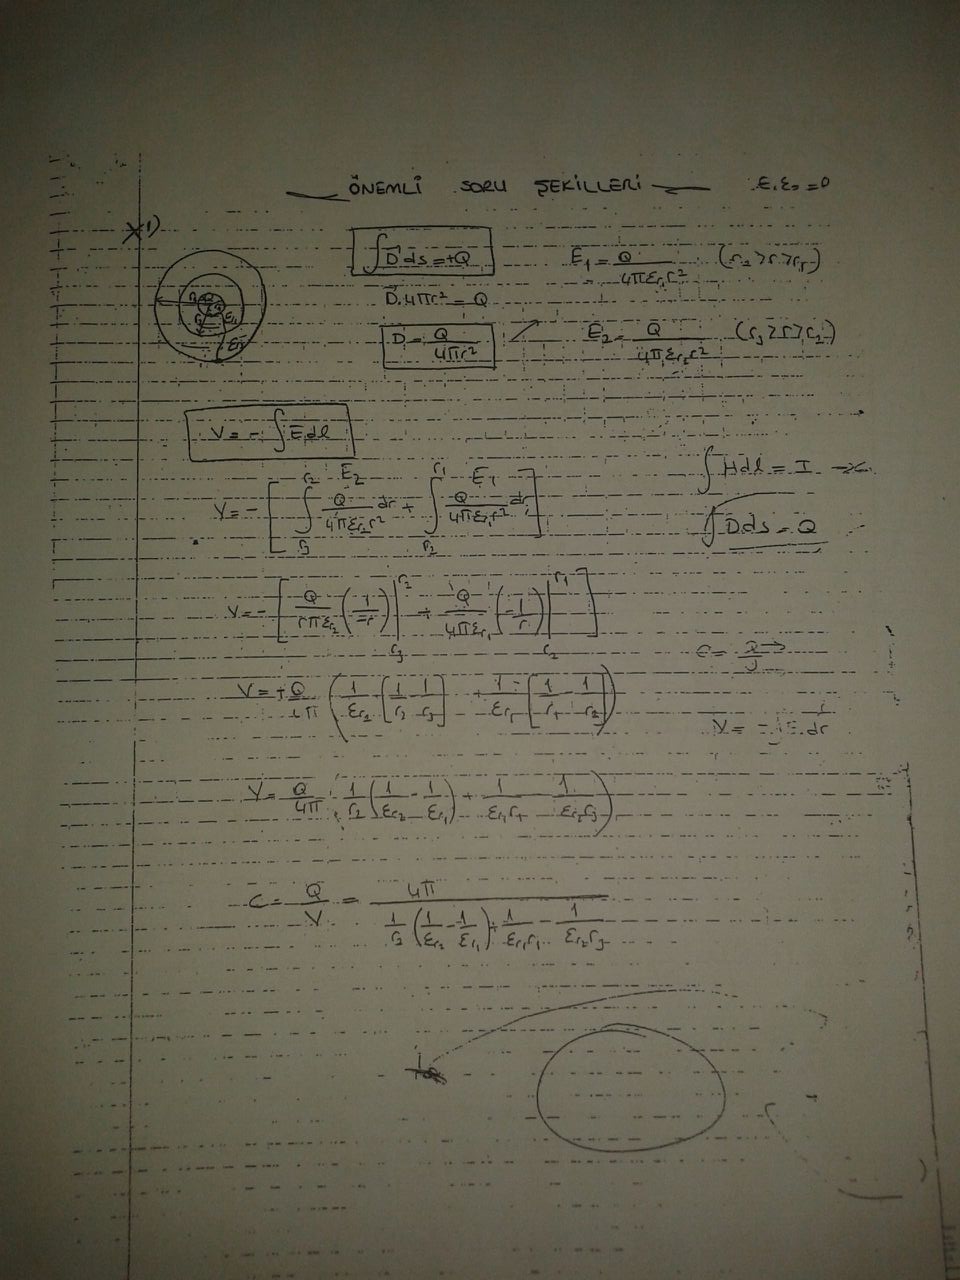 ÖNEMLİ SORU ŞEKİLLERİ
1)
∫D ds = +Q
E₁ = Q / 4πεr₁r² (r₂>r>r₁)
D.4πr² = Q
D = Q / 4πr²
E₂ = Q / 4πεr₂r² (r₃>r>r₂)
V = -∫E.dl
V = -[∫_{r₃}^{r₂} Q / 4πεr₂r² dr + ∫_{r₂}^{r₁} Q / 4πεr₁r² dr]
E₂ E₁
∫Hdl = I
∫Dds = Q
V = -[Q / 4πεr₂ (1 / -r)|_{r₃}^{r₂} + Q / 4πεr₁ (-1 / r)|_{r₂}^{r₁}]
V = +Q / 4π (1/εr₂ [1/r₂ - 1/r₃] + 1/εr₁ [1/r₁ - 1/r₂])
V = -∫E.dr
V = Q / 4π (1/r₂ (1/εr₂ - 1/εr₁) + 1/εr₁r₁ - 1/εr₂r₃)
C = Q / V = 4π / (1/r₂ (1/εr₂ - 1/εr₁) + 1/εr₁r₁ - 1/εr₂r₃)